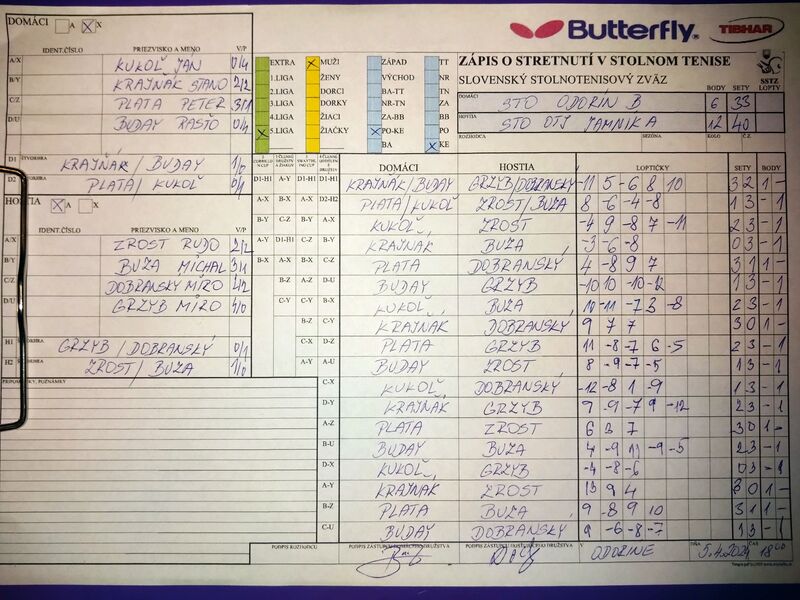 DOMÁCI A X
Butterfly
TIBHAR
IDENT.ČÍSLO PRIEZVISKO A MENO V/P
A/X KUKOĽ JÁN 0/4
B/Y KRAJŇÁK STANO 2/2
C/Z PLATA PETER 3/1
D/U BUDAY RASŤO 0/4
D1 ŠTVORHRA KRAJŇÁK / BUDAY 1/0
D2 PLATA / KUKOĽ 0/1
HOSTIA A X
IDENT.ČÍSLO PRIEZVISKO A MENO V/P
A/X ZROST RUDO 2/2
B/Y BUZA MICHAL 3/1
C/Z DOBRANSKÝ MIRO
D/U GRZYB MIRO 4/0
H1 GRZYB / DOBRANSKÝ 0/1
H2 ZROST / BUZA 1/0
PRIPOMIENKY, POZNÁMKY
EXTRA MUŽI ZÁPAD TT
1.LIGA ŽENY VÝCHOD NR
2.LIGA DORCI BA-TT TN
3.LIGA DORKY NR-TN ZA
4.LIGA ŽIACI ZA-BB BB
5.LIGA ŽIAČKY PO-KE PO
BA KE
ZÁPIS O STRETNUTÍ V STOLNOM TENISE
SLOVENSKÝ STOLNOTENISOVÝ ZVÄZ
SSTZ
BODY SETY LOPTY
DOMÁCI STO ODORÍN B 6 33
HOSTIA STO OTJ JAMNÍK A 12 40
ROZHODCA SEZÓNA KOLO Č.Z.
DOMÁCI HOSTIA LOPTIČKY SETY BODY
D1-H1 A-Y D1-H1 D1-H1 KRAJŇÁK/BUDAY GRZYB/DOBRANSKÝ -11 5 -6 8 10 3 2 1 -
A-X B-X A-X D2-H2 PLATA/KUKOĽ ZROST/BUZA 8 -6 -4 -8 1 3 - 1
B-Y C-Z B-Y A-X KUKOĽ ZROST -4 9 -8 7 -11 2 3 - 1
A-Y D1-H1 C-Z B-Y KRAJŇÁK BUZA -3 -6 -8 0 3 - 1
B-X A-X B-X C-Z PLATA DOBRANSKÝ 4 -8 9 7 3 1 1 -
B-Z A-Z D-U BUDAY GRZYB -10 10 -10 -12 1 3 - 1
C-Y C-Y B-X KUKOĽ BUZA 10 -11 -7 3 -8 2 3 - 1
B-Z C-Y KRAJŇÁK DOBRANSKÝ 9 7 7 3 0 1 -
C-X D-Z PLATA GRZYB 11 -8 -7 6 -5 2 3 - 1
A-Y A-U BUDAY ZROST 8 -9 -7 -5 1 3 - 1
C-X KUKOĽ DOBRANSKÝ -12 -8 1 -9 1 3 - 1
D-Y KRAJŇÁK GRZYB 9 -9 -7 9 -12 2 3 - 1
A-Z PLATA ZROST 6 3 7 3 0 1 -
B-U BUDAY BUZA 4 -9 11 -9 -5 2 3 - 1
D-X KUKOĽ GRZYB -4 -8 -6 0 3 - 1
A-Y KRAJŇÁK ZROST 13 9 4 3 0 1 -
B-Z PLATA BUZA 9 -8 9 10 3 1 1 -
C-U BUDAY DOBRANSKÝ 9 -6 -8 -7 1 3 - 1
PODPIS ROZHODCU PODPIS ZÁSTUPCU DOMÁCEHO DRUŽSTVA PODPIS ZÁSTUPCU HOSŤUJÚCEHO DRUŽSTVA V ODORÍNE DŇA 5.4.2024 ČAS 18:00